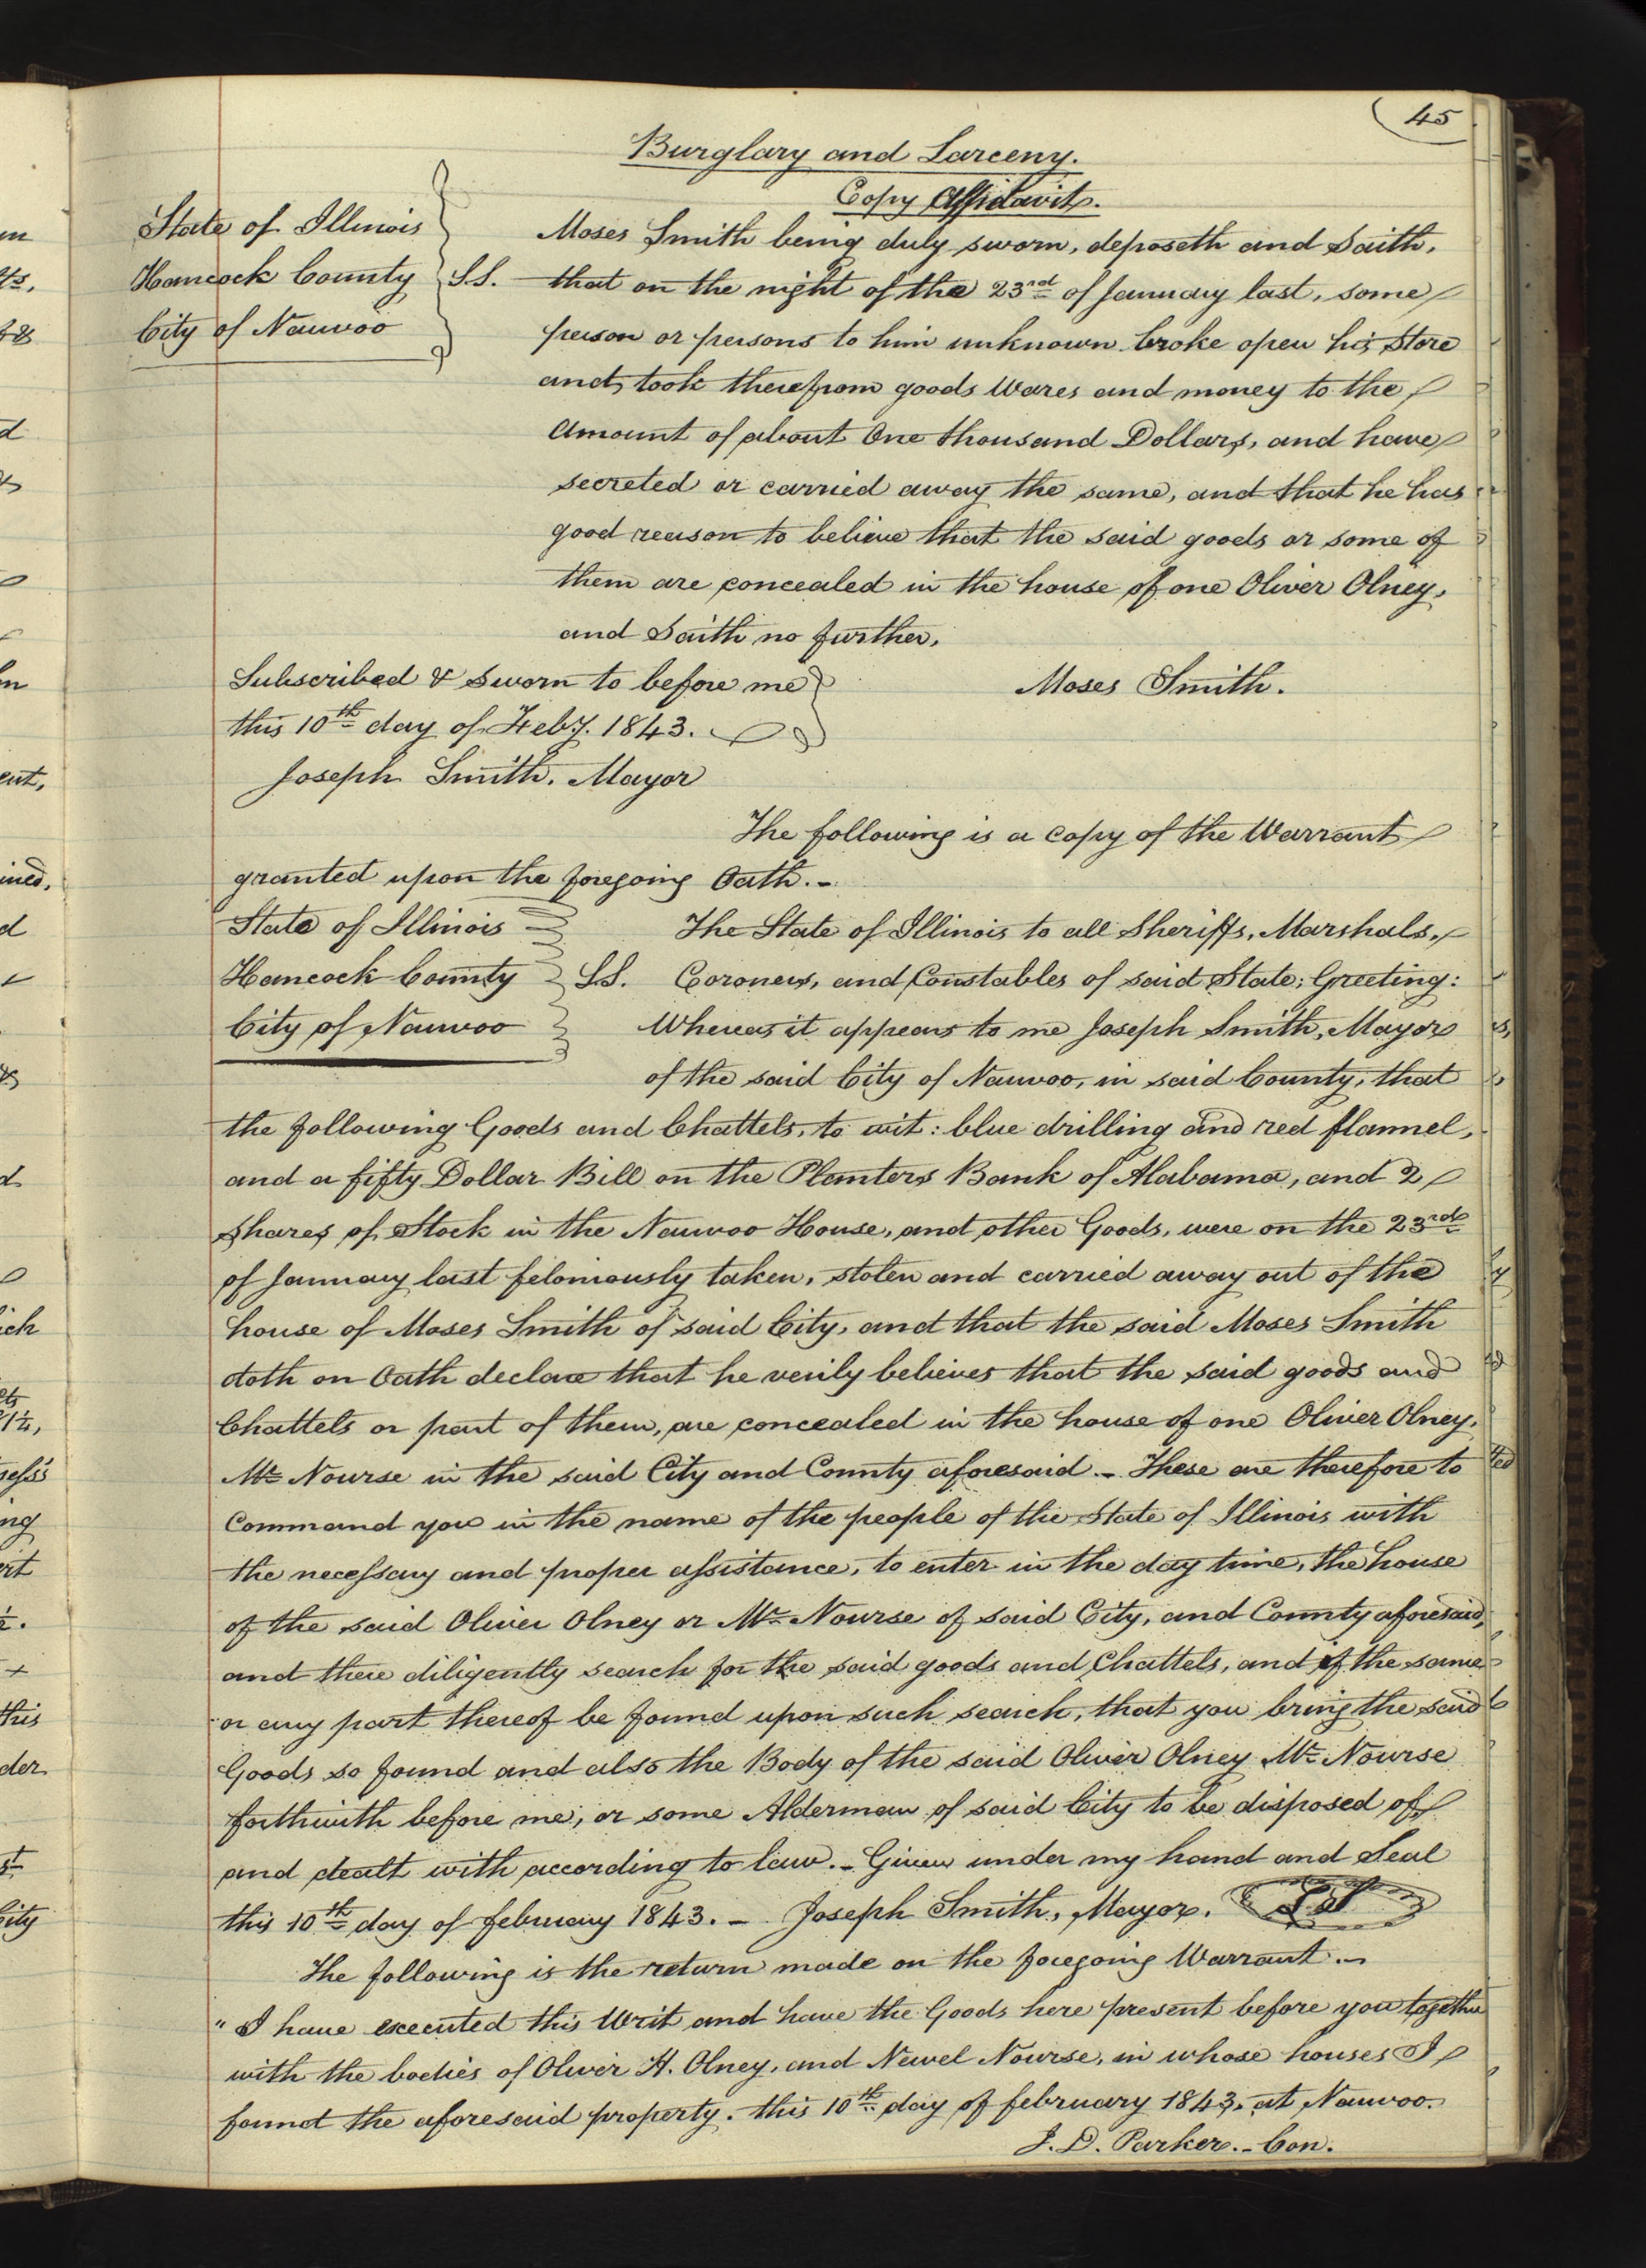 45
Burglary and Larceny.
Copy Affidavit.
State of Illinois
Hancock County SS.
City of Nauvoo
Moses Smith being duly sworn, deposeth and Saith,
that on the night of the 23rd of January last, some
person or persons to him unknown broke open his Store
and took therefrom goods Wares and money to the
Amount of about One thousand Dollars, and have
secreted or carried away the same, and that he has
good reason to believe that the said goods or some of
them are concealed in the house of one Oliver Olney,
and Saith no further.
Subscribed & Sworn to before me
this 10th day of Feby. 1843.
Joseph Smith. Mayor
Moses Smith.
The following is a copy of the Warrant
granted upon the foregoing Oath.-
State of Illinois
Hancock County SS.
City of Nauvoo
The State of Illinois to all Sheriffs, Marshals,
Coroners, and Constables of said State; Greeting:
Whereas it appears to me Joseph Smith, Mayor
of the said City of Nauvoo, in said County, that
the following Goods and Chattels, to wit: blue drilling and red flannel,
and a fifty Dollar Bill on the Planters Bank of Alabama, and 2
Shares of Stock in the Nauvoo House, and other Goods, were on the 23rd
of January last feloniously taken, stolen and carried away out of the
house of Moses Smith of said City, and that the said Moses Smith
doth on Oath declare that he verily believes that the said goods and
Chattels or part of them, are concealed in the house of one Oliver Olney,
Mr Nourse in the said City and County aforesaid.- These are therefore to
Command you in the name of the people of the State of Illinois with
the necessary and proper assistance, to enter in the day time, the house
of the said Oliver Olney or Mr Nourse of said City, and County aforesaid,
and there diligently search for the said goods and Chattels, and if the same
or any part thereof be found upon such search, that you bring the said
Goods so found and also the Body of the said Oliver Olney Mr Nourse
forthwith before me, or some Alderman of said City to be disposed of
and dealt with according to law.- Given under my hand and Seal
this 10th day of february 1843.- Joseph Smith, Mayor. LS
The following is the return made on the foregoing Warrant.-
"I have executed this Writ and have the Goods here present before you together
with the bodies of Oliver H. Olney, and Newel Nourse, in whose houses I
found the aforesaid property. this 10th day of february 1843. at Nauvoo.
J. D. Parker.- Con.